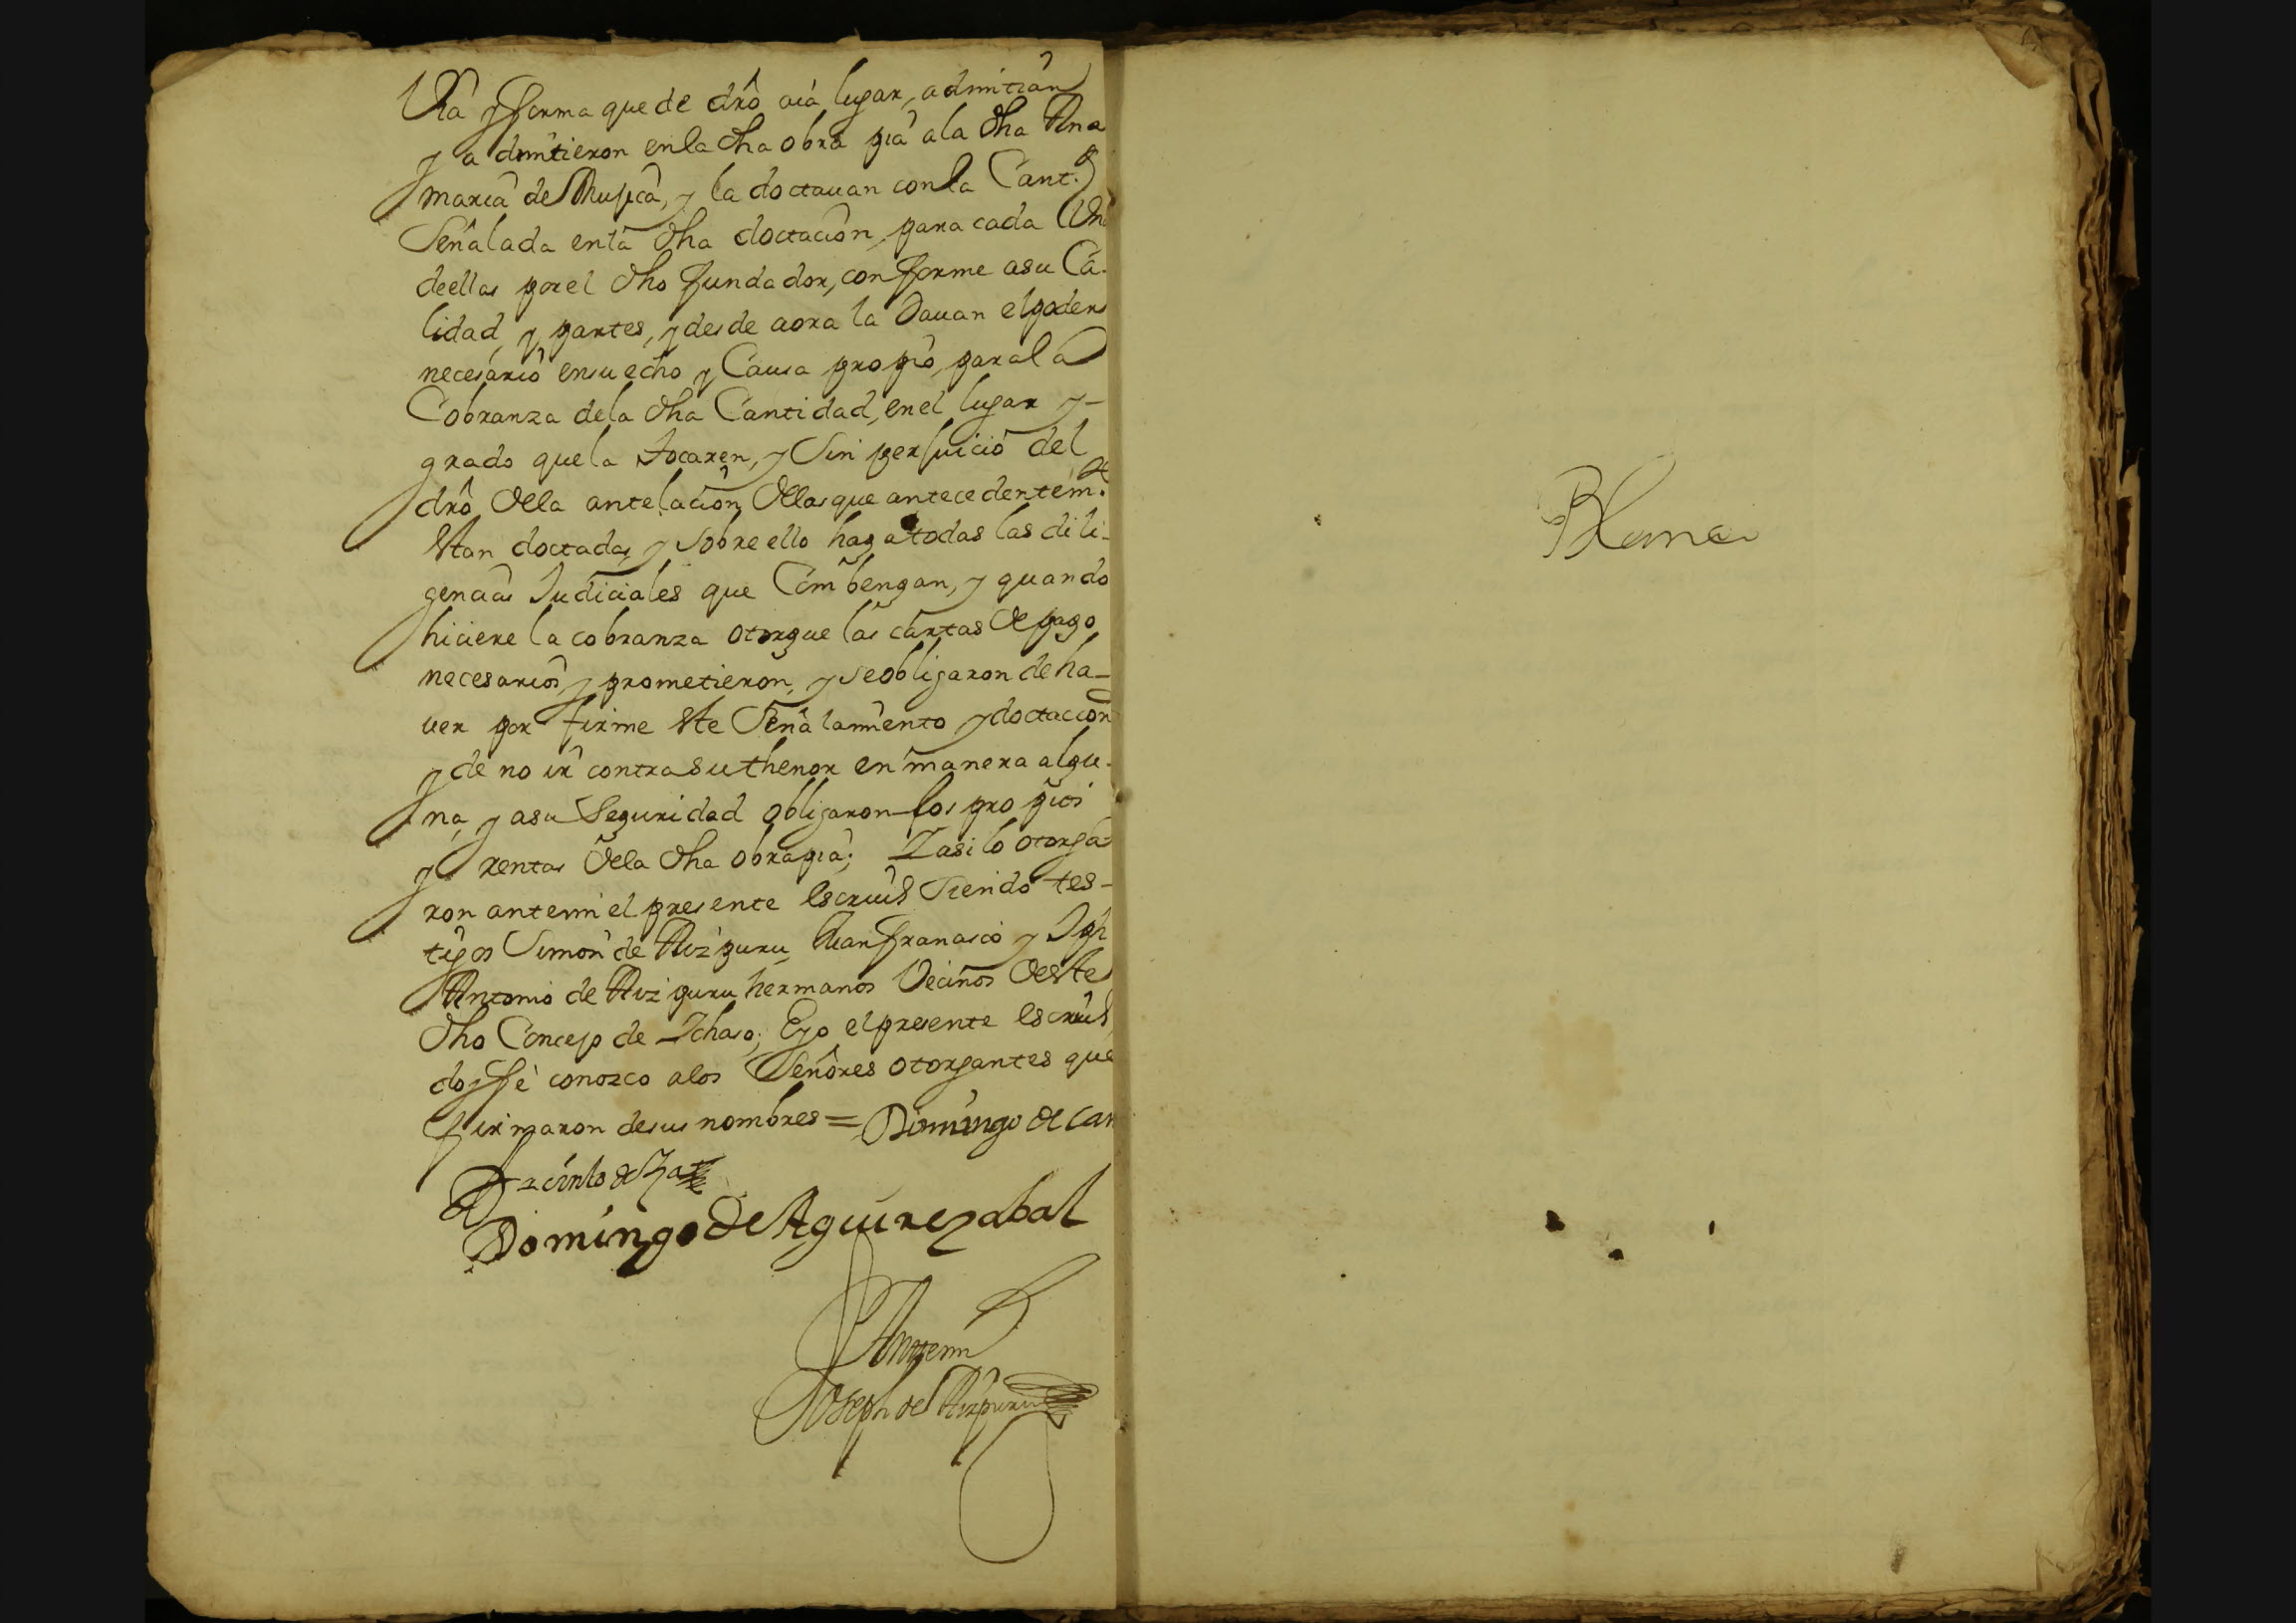 Via y forma que de drô aia lugar, admitian
y admitieron en la dha obra pia a la dha Ana
maria de Mugica, y la doctauan con la Cant.d
Señalada en la dha doctacion, para cada Un
de ellas por el dho fundador, conforme a su Ca-
lidad, y partes, y desde aora la Dauan el poder
necesario en su echo y Causa propio, para la
Cobranza de la dha Cantidad, en el lugar y-
grado que la tocaren, y Sin perjuicio del
drô de la antelacion de las que antecedentem.te
estan doctadas, y Sobre ello haga todas las dili-
gencias Judiciales que Combengan, y quando
hiciere la cobranza otorgue las cartas de pago
necesarios, y prometieron, y se obligaron de ha-
uer por firme este Señalamiento y doctacion
y de no ir contra su thenor en manera algu-
na, y a su Seguridad obligaron los propios
y rentas de la dha obra pia; Y asi lo otorga
ron ante mi el presente escriuo Siendo tes-
tigos Simon de Aizpuru, Juan francisco y Igo
Antonio de Aizpuru hermanos Vecinos de este
dho Concejo de Ichaso; E yo el presente escriuo
doy fe conozco a los Señores otorgantes que
firmaron de sus nombres = Domingo de Can
Jacinto de
Domingo de Aguirezabal
Ante mi
Joseph de Aizpuru
Blanca